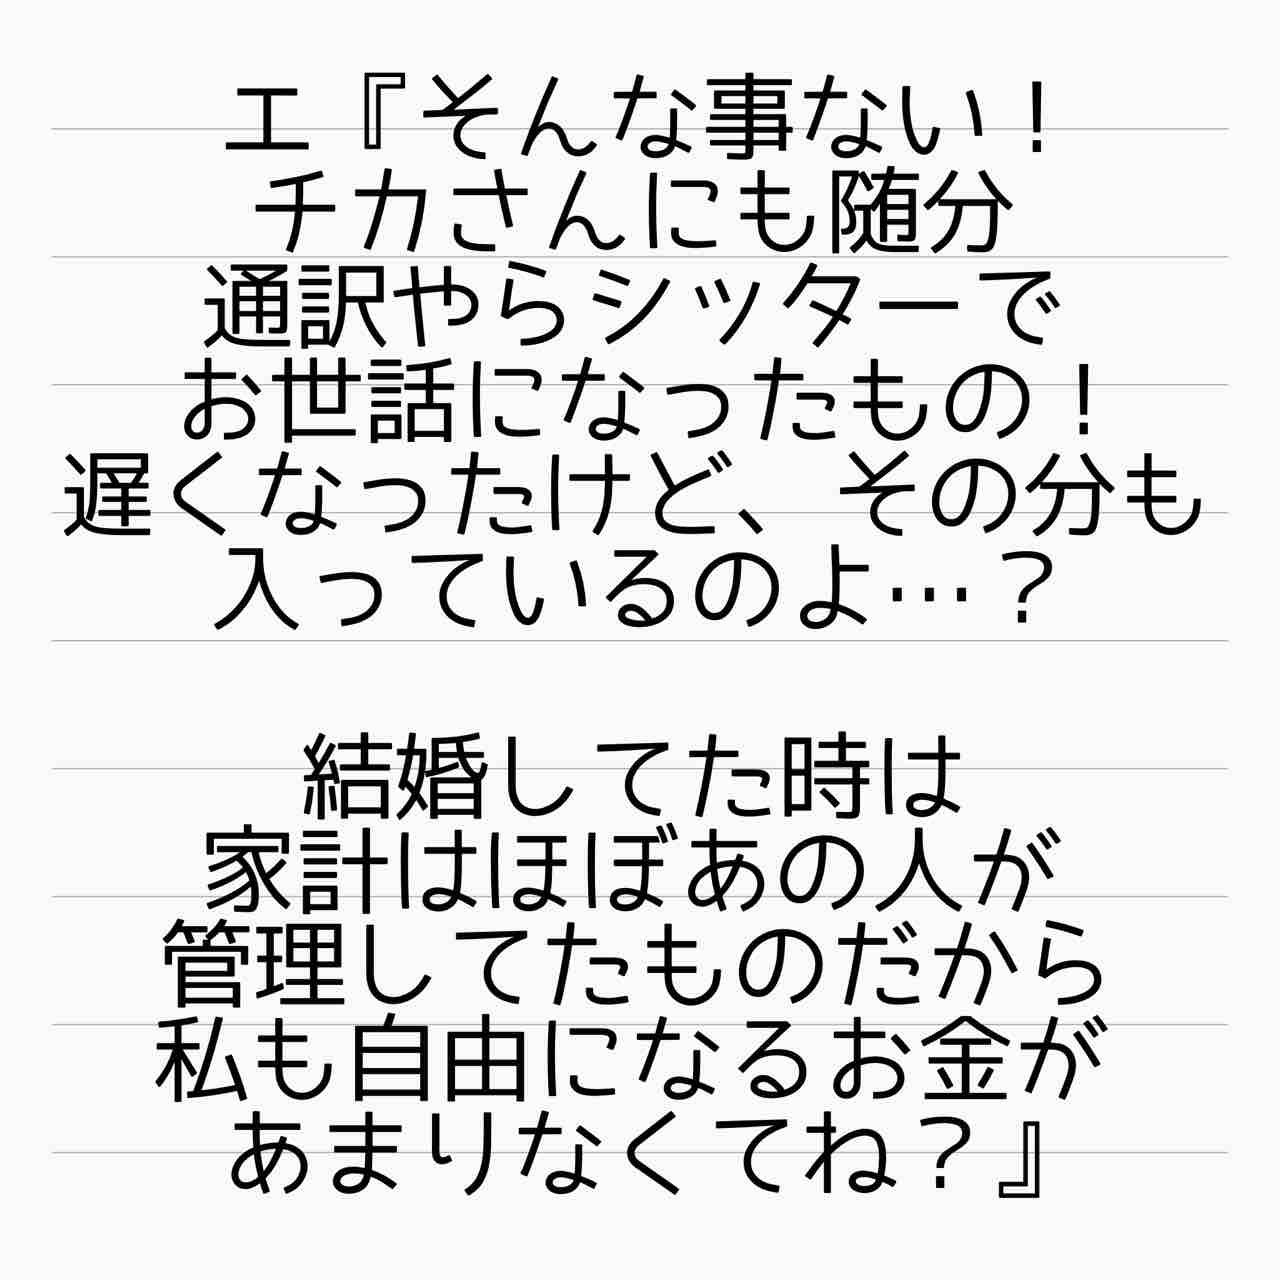 エ『そんな事ない！
チカさんにも随分
通訳やらシッターで
お世話になったもの！
遅くなったけど、その分も
入っているのよ…？
結婚してた時は
家計はほぼあの人が
管理してたものだから
私も自由になるお金が
あまりなくてね？』